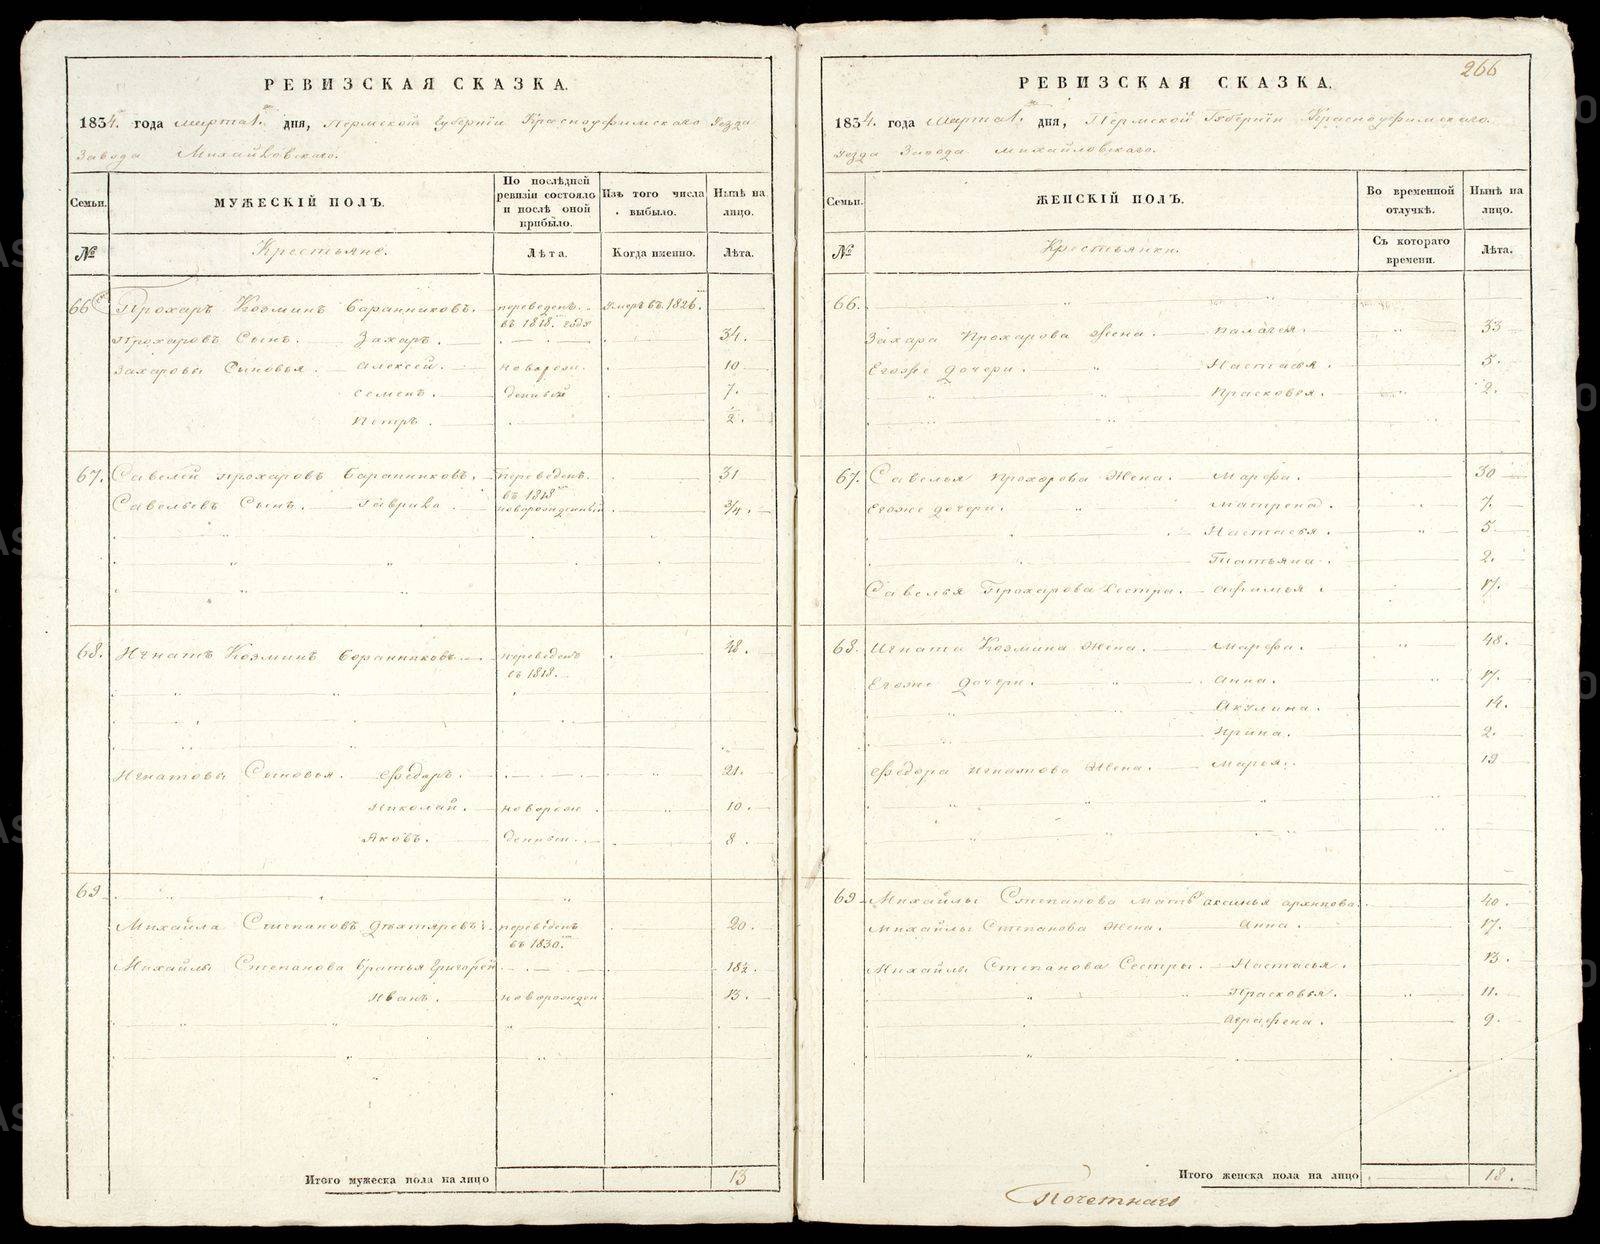 РЕВИЗСКАЯ СКАЗКА.
1834. года марта 1. дня, Пермской Губернии Красноуфимскаго Уезда
Завода Михайловскаго.
Семьи. МУЖЕСКІЙ ПОЛЪ. По послѣдней ревизіи состояло и послѣ оной прибыло. Изъ того числа выбыло. Нынѣ на лицо.
№ Крестьяне. Лѣта. Когда именно. Лѣта.
66 Прохаръ Козминъ Баранниковъ. переведенъ умеръ въ 1826.
въ 1818. годе
Прохаровъ Сынъ. Захаръ. 34.
Захаровы Сыновья. Алексей. новорож 10
Семенъ. денные 7.
Петръ. ½.
67. Савелей Прохаровъ Баранниковъ. переведенъ 31
въ 1818
Савельевъ Сынъ. Гаврила новорожденный ¾.
68. Игнатъ Козминъ Баранниковъ переведенъ 48.
въ 1818.
Игнатовы Сыновья. Федоръ. 21.
Николай. новорож 10.
Яковъ. денные. 8
69
Михайла Степановъ Дехтяревъ. переведенъ 20.
въ 1830.
Михайлы Степанова Братья Григорей 18½.
Иванъ. новорожден 13.
Итого мужеска пола на лицо 13
266
РЕВИЗСКАЯ СКАЗКА.
1834. года Марта 1. дня, Пермской Губернии Красноуфимскаго.
Уезда Завода Михайловскаго.
Семьи. ЖЕНСКІЙ ПОЛЪ. Во временной отлучкѣ. Нынѣ на лицо.
№ Крестьянки. Съ котораго времени. Лѣта.
66.
Захара Прохарова Жена. Палагея. 33
Егоже дочери. Настасья. 5.
Прасковья. 2.
67. Савелья Прохорова Жена. Марфа. 30
Егоже дочери. Матрена. 7.
Настасья. 5.
Татьяна. 2.
Савелья Прохарова Сестра. Афимья. 17.
68. Игната Козмина Жена. Марфа. 48.
Егоже Дочери. Анна. 17.
Акулина. 14.
Ирина. 2.
Федора Игнатова Жена. Марья. 19
69 Михайлы Степанова Мать Аксинья Архипова. 40.
Михайлы Степанова Жена. Анна. 17.
Михайлы Степанова Сестры. Настасья. 13.
Прасковья. 11.
Аграфена. 9.
Итого женска пола на лицо 18.
Почетнаго